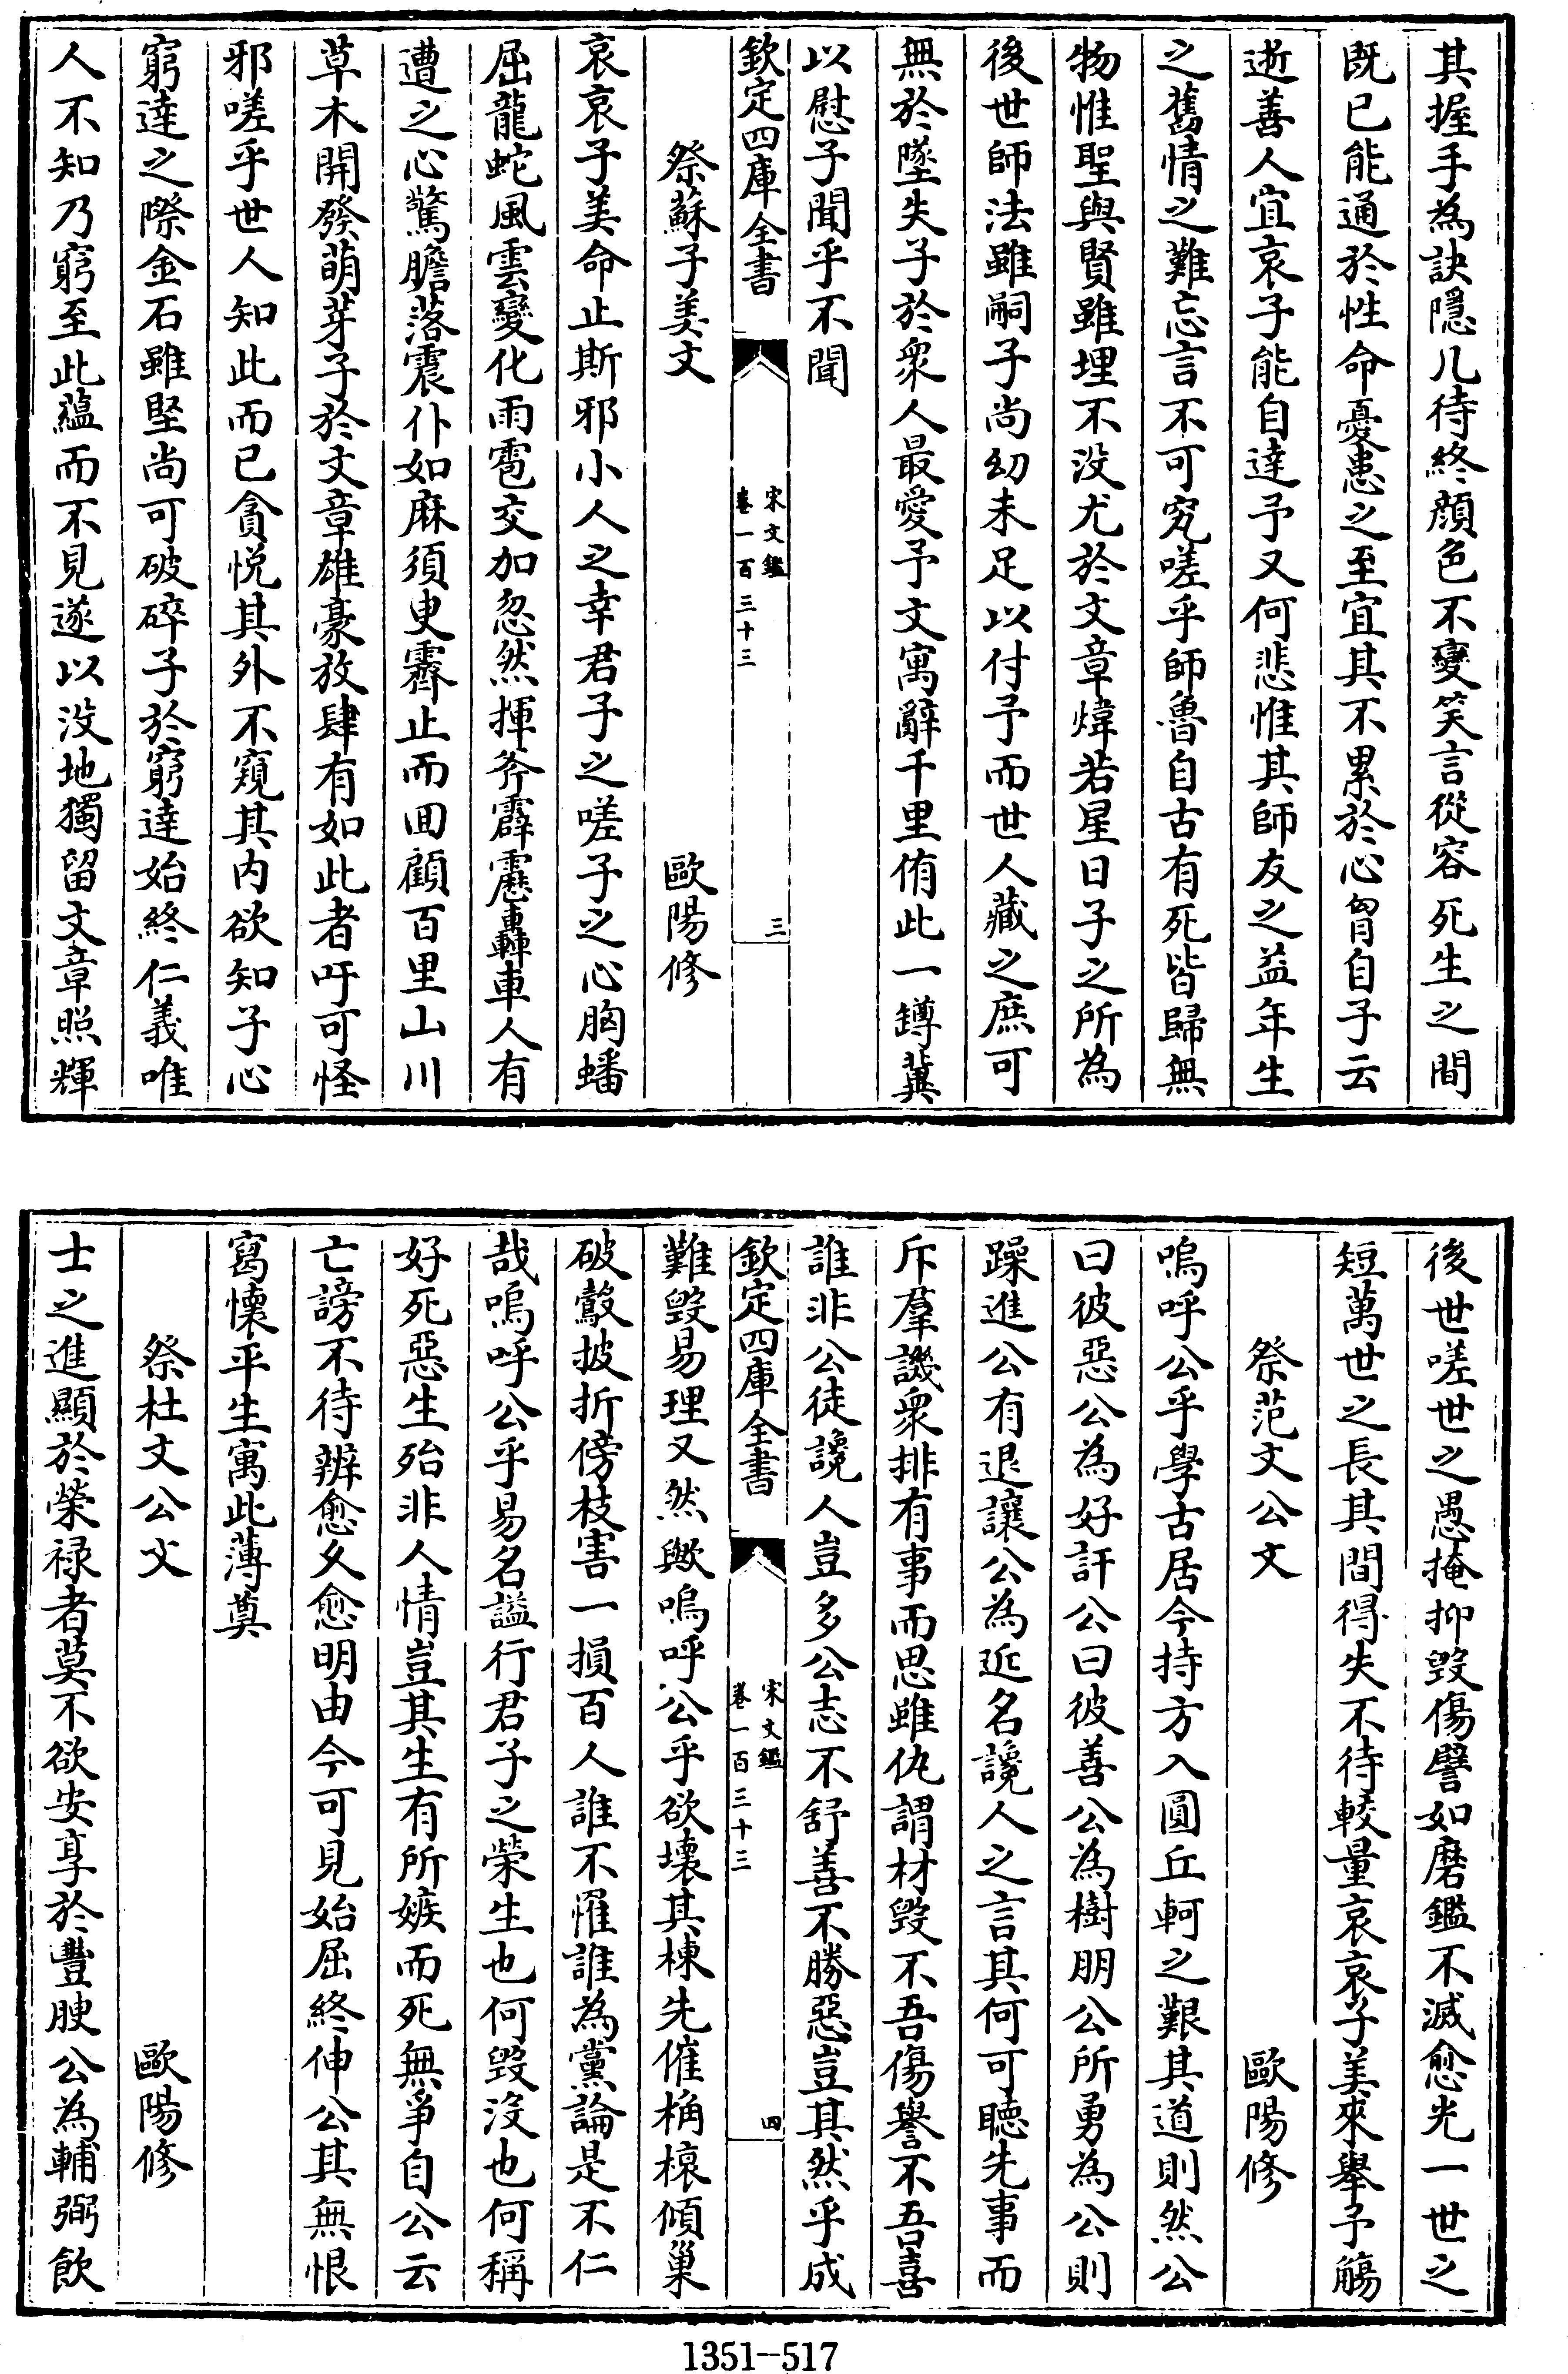 其握手為訣隱几待終顔色不變笑言從容死生之間
既已能通於性命憂患之至宜其不累於心胷自子云
逝善人宜哀子能自達予又何悲惟其師友之益年生
之舊情之難忘言不可究嗟乎師魯自古有死皆歸無
物惟聖與賢雖埋不没尤於文章煒若星日子之所為
後世師法雖嗣子尚幼未足以付予而世人藏之庶可
無於墜失子於衆人最愛予文寓辭千里侑此一罇冀
以慰子聞乎不聞
欽定四庫全書
宋文鑑
卷一百三十三
三
祭蘇子美文 歐陽修
哀哀子美命止斯邪小人之幸君子之嗟子之心胸蟠
屈龍蛇風雲變化雨雹交加忽然揮斧霹靂轟車人有
遭之心驚膽落震仆如麻須臾霽止而囬顧百里山川
草木開發萌芽子於文章雄豪放肆有如此者吁可怪
邪嗟乎世人知此而已貪悦其外不窺其内欲知子心
窮達之際金石雖堅尚可破碎子於窮達始終仁義唯
人不知乃窮至此藴而不見遂以没地獨留文章照輝
後世嗟世之愚掩抑毀傷譬如磨鑑不滅愈光一世之
短萬世之長其間得失不待較量哀哀子美來舉予觴
祭范文公文 歐陽修
嗚呼公乎學古居今持方入圓丘軻之艱其道則然公
曰彼惡公為好訐公曰彼善公為樹朋公所勇為公則
躁進公有退讓公為近名讒人之言其何可聴先事而
斥羣譏衆排有事而思雖仇謂材毀不吾傷譽不吾喜
誰非公徒讒人豈多公志不舒善不勝惡豈其然乎成
欽定四庫全書
宋文鑑
卷一百三十三
四
難毀易理又然歟嗚呼公乎欲壞其棟先傕桷榱傾巢
破鷇披折傍枝害一損百人誰不罹誰為黨論是不仁
哉嗚呼公乎易名謚行君子之榮生也何毀没也何稱
好死惡生殆非人情豈其生有所嫉而死無爭自公云
亡謗不待辨愈久愈明由今可見始屈終伸公其無恨
寫懷平生寓此薄奠
祭杜文公文 歐陽修
士之進顯於榮禄者莫不欲安享於豐腴公為輔弼飲
1351-517